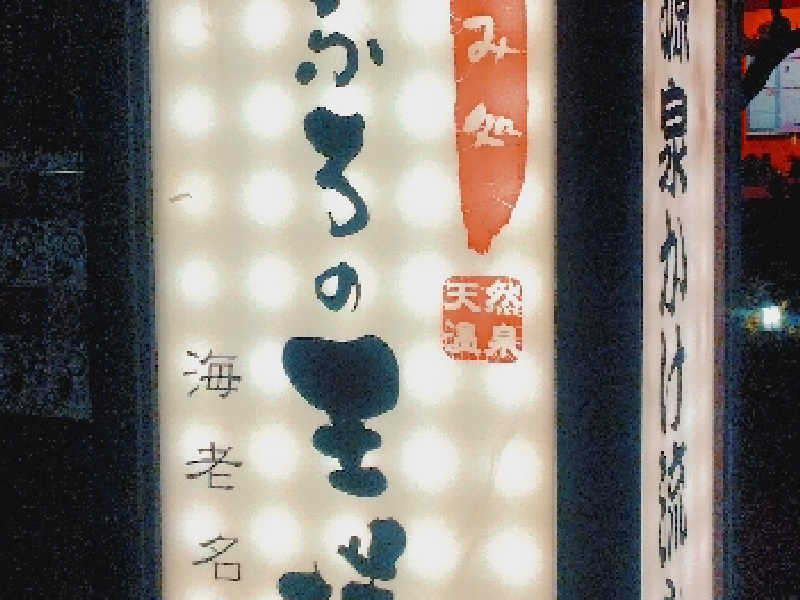 源泉かけ流
み処
天然
温泉
ふろの王様
海老名